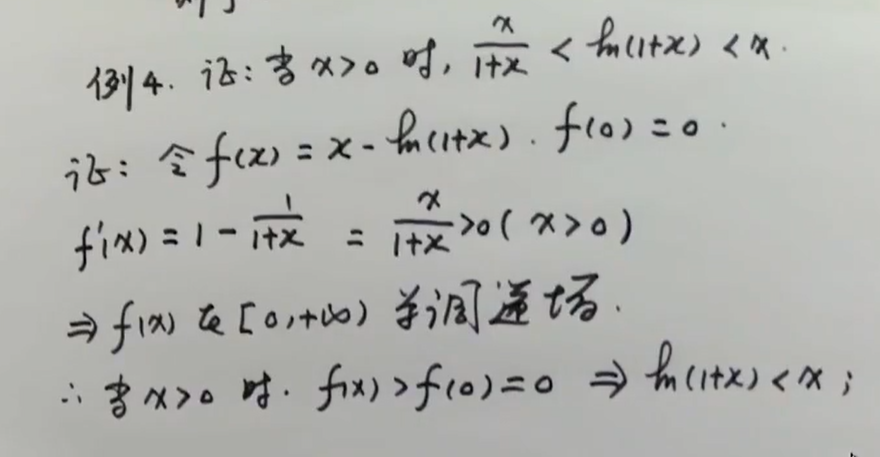 例4. 证: 当 x>0 时, x/(1+x) < ln(1+x) < x.
证: 令 f(x) = x - ln(1+x). f(0) = 0.
f'(x) = 1 - 1/(1+x) = x/(1+x) >0 ( x>0 )
⇒ f(x) 在 [0,+∞) 单调递增.
∴ 当 x>0 时. f(x) > f(0) = 0 ⇒ ln(1+x) < x ;